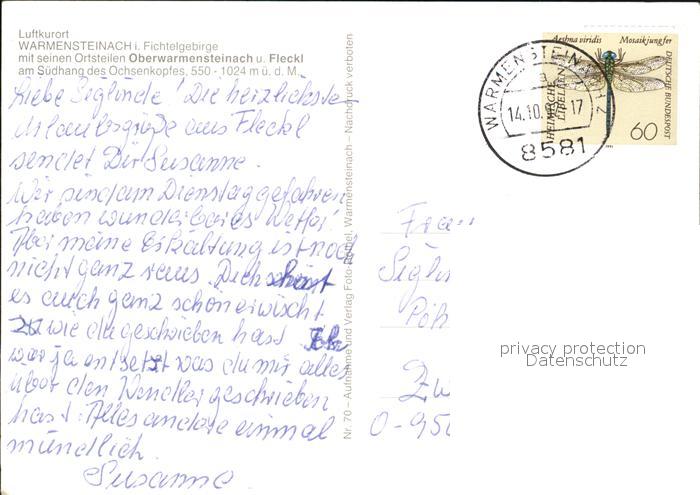 Luftkurort
WARMENSTEINACH i. Fichtelgebirge
mit seinen Ortsteilen Oberwarmensteinach u. Fleckl
am Südhang des Ochsenkopfes, 550 - 1024 m ü. d. M.
Liebe Sieglinde! Die herzlichsten
Urlaubsgrüße aus Fleckl
sendet Dir Susanne.
Wir sind am Dienstag gefahren
haben wunderbares Wetter!
Aber meine Erkältung ist noch
nicht ganz raus. Dich scheint
es auch ganz schön erwischt
wie du geschrieben hast. Ich
war ja entsetzt was du mir alles
über den Wendler geschrieben
hast. Alles andere einmal
mündlich.
Susanne
Nr. 70 – Aufnahme und Verlag Foto- Warmensteinach – Nachdruck verboten
Aeshna viridis Mosaikjungfer
HEIMISCHE
LIBELLEN
DEUTSCHE BUNDESPOST
60
WARMENSTEINACH
14.10. 17
8581
Frau
Siegl
Pöh
Zw
O-95
privacy protection
Datenschutz